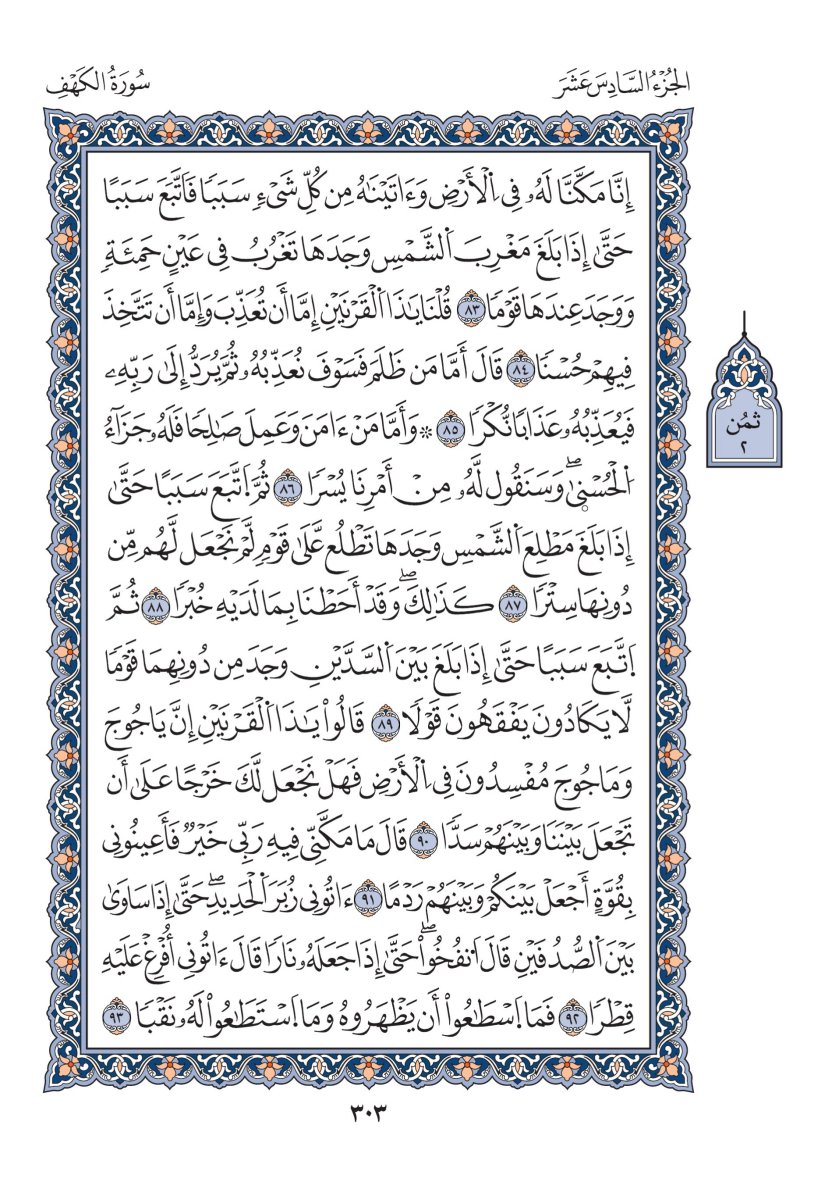 الجُزْءُ السَّادِسَ عَشَرَ
سُورَةُ الكَهْفِ
إِنَّا مَكَّنَّا لَهُۥ فِى اِ۬لْأَرْضِ وَءَاتَيْنَٰهُ مِن كُلِّ شَىْءٖ سَبَبٗا فَاتَّبَعَ سَبَبًا
حَتَّىٰ إِذَا بَلَغَ مَغْرِبَ اَ۬لشَّمْسِ وَجَدَهَا تَغْرُبُ فِى عَيْنٍ حَمِئَةٖ
وَوَجَدَ عِندَهَا قَوْمٗا ٨٣ قُلْنَا يَٰذَا اَ۬لْقَرْنَيْنِ إِمَّا أَن تُعَذِّبَ وَإِمَّا أَن تَتَّخِذَ
فِيهِمْ حُسْنٗا ٨٤ قَالَ أَمَّا مَن ظَلَمَ فَسَوْفَ نُعَذِّبُهُۥ ثُمَّ يُرَدُّ إِلَىٰ رَبِّهِۦ
فَيُعَذِّبُهُۥ عَذَابٗا نُّكْرٗا ٨٥ ۞ وَأَمَّا مَنْ ءَامَنَ وَعَمِلَ صَٰلِحٗا فَلَهُۥ جَزَآءُ
اُ۬لْحُسْنٜىٰۖ وَسَنَقُول لَّهُۥ مِنْ أَمْرِنَا يُسْرٗا ٨٦ ثُمَّ اَ۪تَّبَعَ سَبَبًا حَتَّىٰ
إِذَا بَلَغَ مَطْلِعَ اَ۬لشَّمْسِ وَجَدَهَا تَطْلُع عَّلَىٰ قَوْمٖ لَّمْ نَجْعَل لَّهُم مِّن
دُونِهَا سِتْرٗا ٨٧ كَذَٰلِكَۖ وَقَدْ أَحَطْنَا بِمَا لَدَيْهِ خُبْرٗا ٨٨ ثُمَّ
اَ۪تَّبَعَ سَبَبًا حَتَّىٰ إِذَا بَلَغَ بَيْنَ اَ۬لسَّدَّيْنِ وَجَدَ مِن دُونِهِمَا قَوْمٗا
لَّا يَكَادُونَ يَفْقَهُونَ قَوْلٗا ٨٩ قَالُواْ يَٰذَا اَ۬لْقَرْنَيْنِ إِنَّ يَاجُوجَ
وَمَاجُوجَ مُفْسِدُونَ فِى اِ۬لْأَرْضِ فَهَلْ نَجْعَل لَّكَ خَرْجًا عَلَىٰ أَن
تَجْعَلَ بَيْنَنَا وَبَيْنَهُمْ سَدّٗا ٩٠ قَالَ مَا مَكَّنِّى فِيهِ رَبِّى خَيْرٞ فَأَعِينُونِى
بِقُوَّةٍ أَجْعَلْ بَيْنَكُمْ وَبَيْنَهُمْ رَدْمًا ٩١ ءَاتُونِى زُبَرَ اَ۬لْحَدِيدِۖ حَتَّىٰ إِذَا سَاوَىٰ
بَيْنَ اَ۬لصُّدُفَيْنِ قَالَ اَ۟نفُخُواْۖ حَتَّىٰ إِذَا جَعَلَهُۥ نَارٗا قَالَ ءَاتُونِى أُفْرِغْ عَلَيْهِ
قِطْرٗا ٩٢ فَمَا اَ۪سْطَٰعُواْ أَن يَظْهَرُوهُ وَمَا اَ۪سْتَطَٰعُواْ لَهُۥ نَقْبٗا ٩٣
ثمُن
٢
٣٠٣